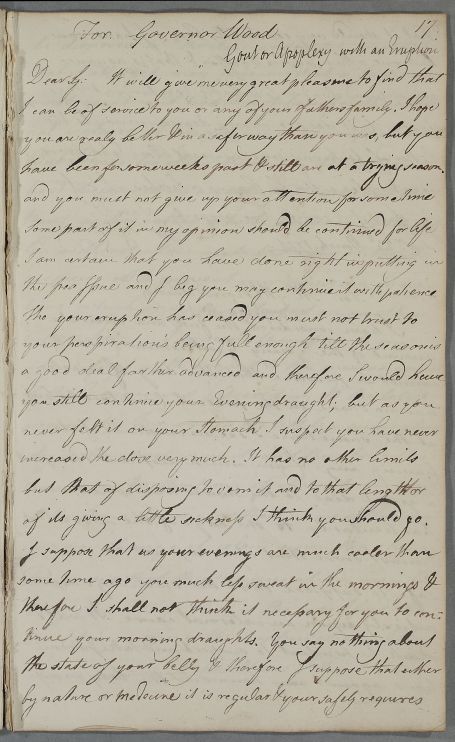 17
For Governor Wood
Gout or Apoplexy with an Eruption
Dear Sir: It will give me very great pleasure to find that
I can be of service to you or any of your Fathers family. I hope
you are realy better & in a safer way than you was, but you
have been for some weeks past & still are at a trying season.
and you must not give up your attention for some time
some part of it in my opinion should be continued for life
I am certain that you have done right in putting in
the pea Issue and I beg you may continue it with patience
tho your eruption has ceased you must not trust to
your perspiration's being full enough till the season is
a good deal farther advanced and therefore I would have
you still continue your Evening draught; but as you
never felt it on your stomach I suspect you have never
increased the dose very much. It has no other limits
but that of disposing to vomit and to that length or
of its giving a little sickness I think you should go.
I suppose that as your evenings are much cooler than
some time ago you much less sweat in the mornings &
therefore I shall not think it necessary for you to con:
tinue your morning draughts. You say nothing about
the state of your belly & therefore I suppose that either
by nature or medicine it is regular & your safety requires